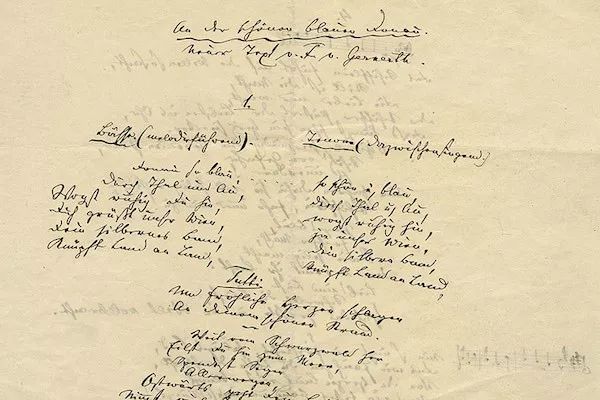 An der schönen blauen Donau.
Neuer Text v. F. v. Gernerth.
1.
Bässe (melodieführend).
Donau so blau,
durch Thal und Au,
Wogst ruhig du hin,
Dich grüßt unser Wien,
Dein silbernes Band,
Knüpft Land an Land,
Tenore (dazwischensingend.)
so schön u. blau,
durch Thal u. Au,
wogst ruhig hin,
ja unser Wien,
dein silbern Band,
knüpft Land an Land,
Tutti
Und fröhliche Herzen schlagen
An deinem schönen Strand.
Weit vom Schwarzwald her
Eilst du hin zum Meer,
Spendest Segen
Allerwegen,
Ostwärts geht dein